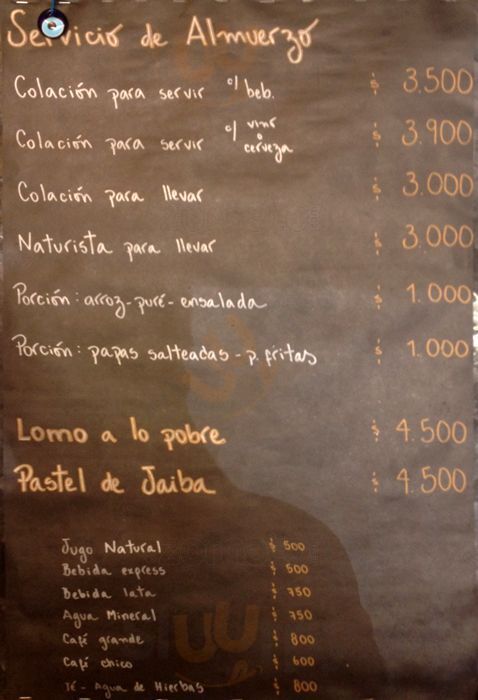 Servicio de Almuerzo
Colación para servir c/ beb. $ 3.500
Colación para servir c/ vino o cerveza $ 3.900
Colación para llevar $ 3.000
Naturista para llevar $ 3.000
Porción: arroz-puré-ensalada $ 1.000
Porción: papas salteadas - p. fritas $ 1.000
Lomo a lo pobre $ 4.500
Pastel de Jaiba $ 4.500
Jugo Natural $ 500
Bebida express $ 500
Bebida lata $ 750
Agua Mineral $ 750
Café grande $ 800
Café chico $ 600
Té - Agua de Hierbas $ 800